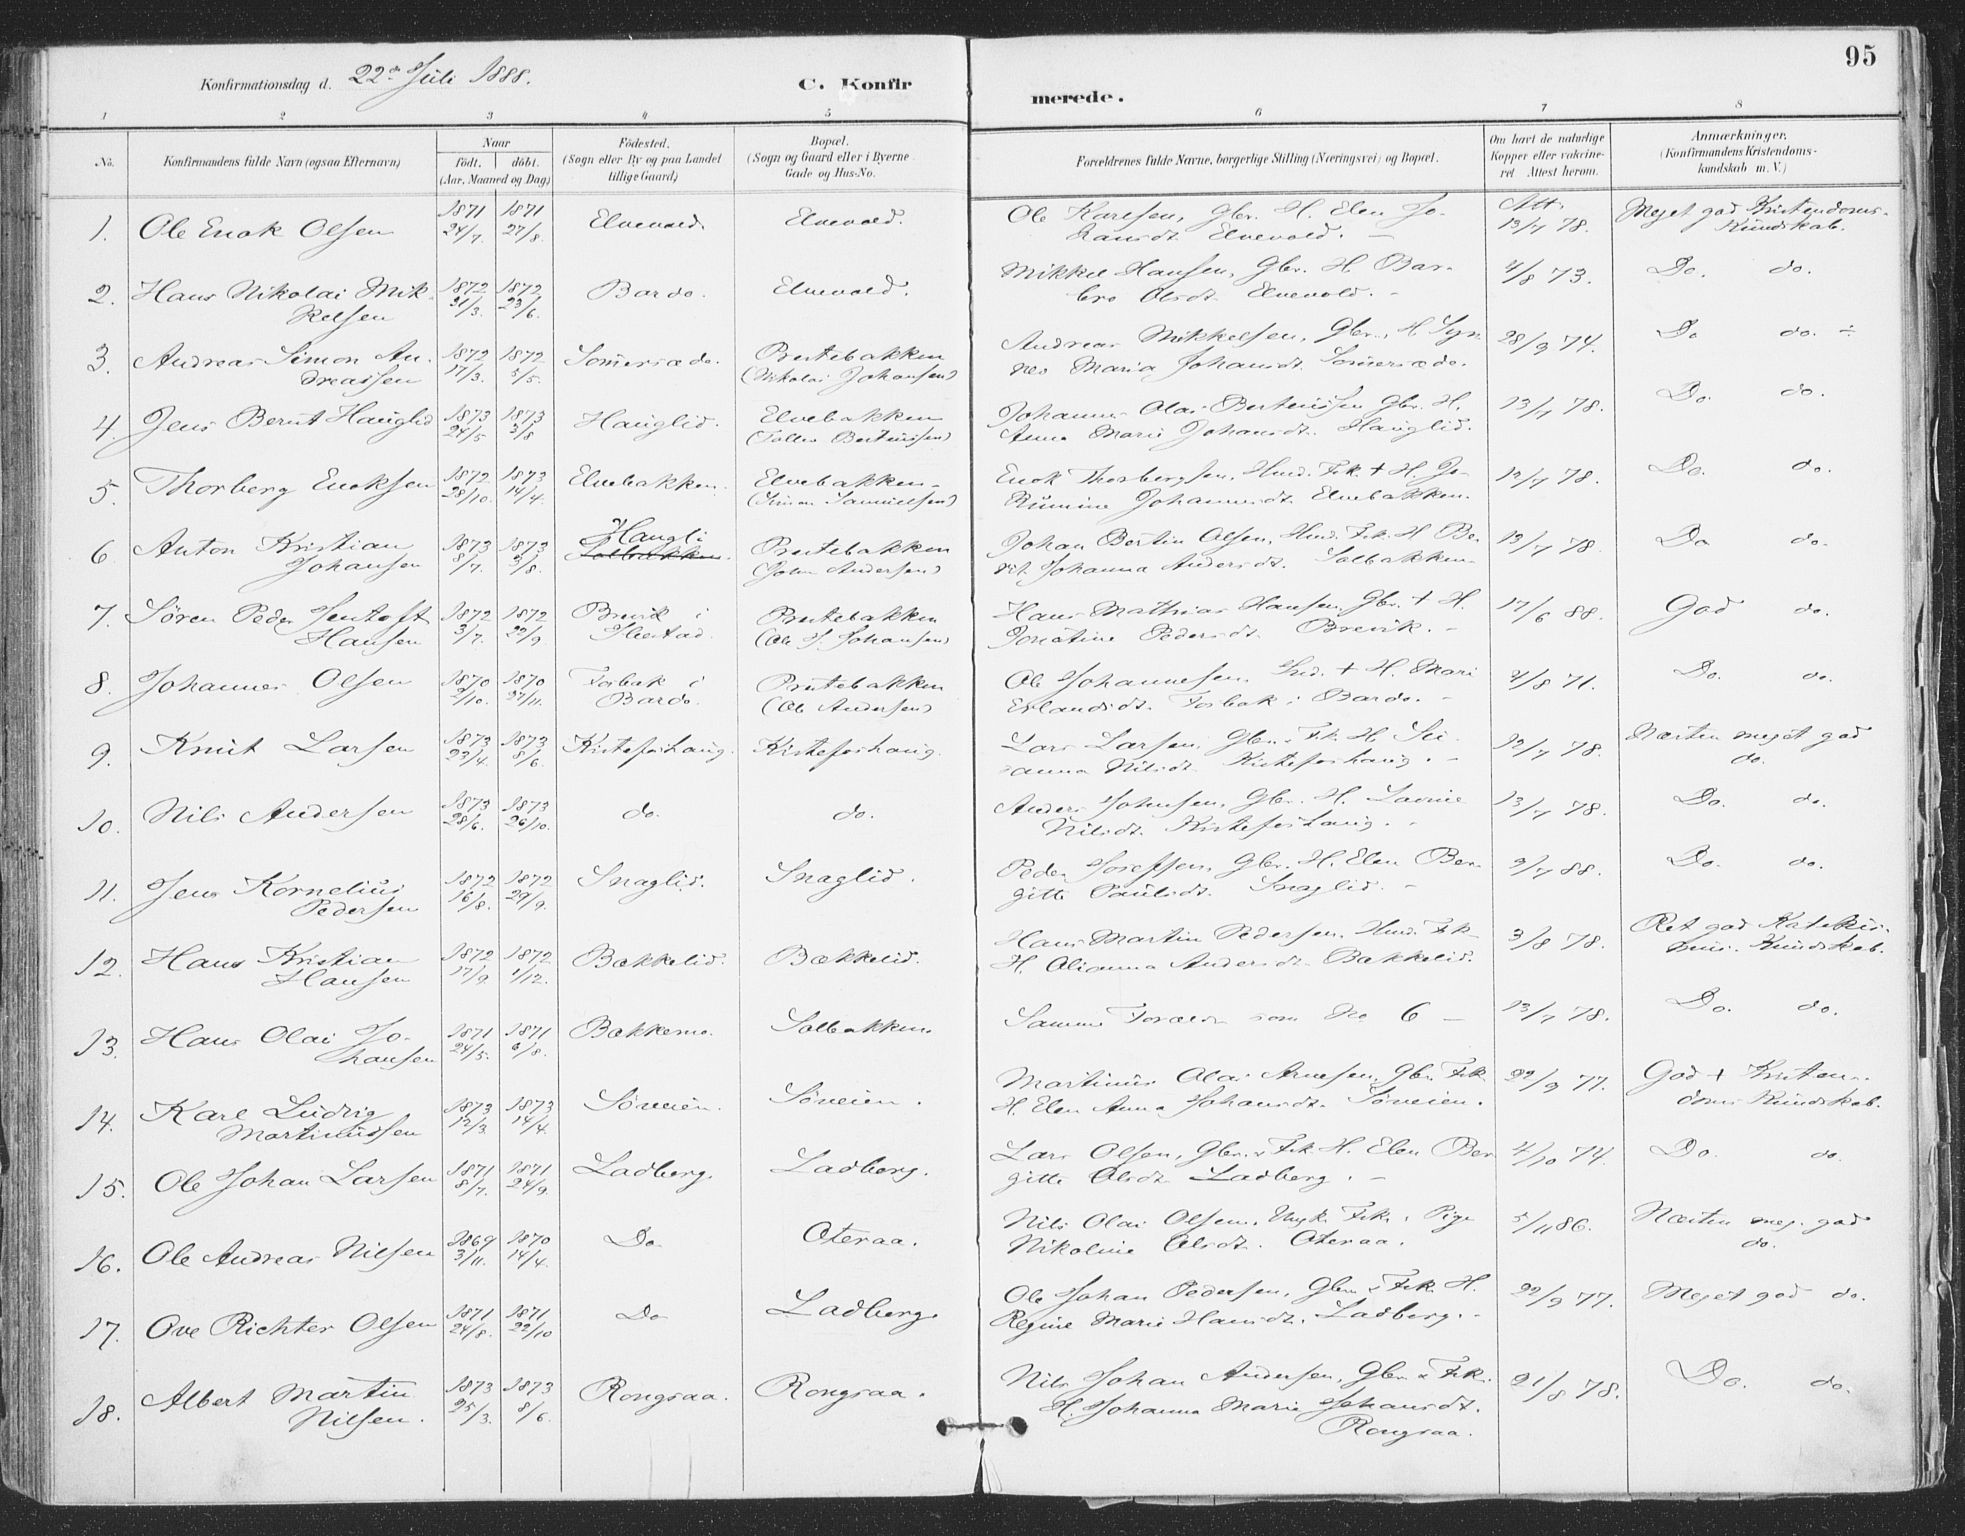 95
Konfirmationsdag d. 22de Juli 1888.
C. Konfir
merede.
1 2 3 4 5 6 7 8
No.
Konfirmandens fulde Navn (ogsaa Efternavn)
Naar
födt. döbt.
(Aar, Maaned og Dag)
Födested.
(Sogn eller By og paa Landet
tillige Gaard)
Bopæl.
(Sogn og Gaard eller i Byerne
Gade og Hus-No.
Forældrenes fulde Navne, borgerlige Stilling (Næringsvei) og Bopæl.
Om havt de naturlige
Kopper eller vakcine-
ret Attest herom.
Anmærkninger.
(Konfirmandens Kristendoms-
kundskab m. V.)
1. Ole Enok Olsen 1871 24/7. 1871 27/8. Elvevold. Elvevold. Ole Karlsen, Gbr. H. Elen Jo-
hansdt. Elvevold. – Att. 13/7 78. Meget god Kristendoms-
Kundskab.
2. Hans Nikolai Mik-
kelsen 1872 31/3. 1872 23/6. Bardo. Elvevold. Mikkel Hansen, Gbr. H. Bar-
bro Olsdt. Elvevold. – 4/8 73. Do. do.
3. Andreas Simon An-
dreassen 1872 17/3. 1872 5/5. Somersæde. Prestebakken
(Nikolai Johansen) Andreas Mikkelsen, Gbr., H. Syn
Maria Johansdt. Somersæde. 28/9 74. Do do. ÷
4. Jens Bernt Hauglid 1873 24/5 1873 3/8 Hauglid. Elvebakken
(Bertinssen) Johannes Olai Bertinssen Gbr. H.
Anne Marie Johansdt. Hauglid. 13/7 78. Do. do.
5. Thorberg Enoksen 1872 28/10. 1873 14/4. Elvebakken. Elvebakken –
(Simon Samuelsen) Enok Thorbergsen, Hmd. Fsk. + H. Jo-
Rumine Johannesdt. Elvebakken. 12/7 78. Do. do.
6. Anton Kristian
Johansen 1873 8/7. 1873 3/8. Haugli
Solbakken. Prestebakken
(John Andersen) Johan Bertin Olsen, Hmd. Fsk. H. Be-
rit Johanna Andersdt. Solbakken. 13/7 78. Do do.
7. Sören Peder Jentoft
Hansen 1872 3/7. 1872 22/9 Brevik i
Ibestad. Prestebakken
(Ole H. Johansen) Hans Mathias Hansen, Gbr. + H.
Jonetine Pedersdt. Brevik. – 17/6 88. God do.
8. Johannes Olsen 1870 2/10. 1870 27/11. Fosbak i
Bardo. Prestebakken
(Ole Andersen) Ole Johannesen, Ind. + H. Mari
Erlandsdt. Fosbak i Bardo. – 4/8 71. Do. do.
9. Knut Larsen 1873 23/4. 1873 8/6. Kistefoshaug. Kistefoshaug. Lars Larsen, Gbr. & Fsk. H. Su-
sanna Nilsdt. Kistefoshaug. – 12/7 78. Næsten meget god
do.
10. Nils Andersen 1873 28/6. 1873 26/10. do. do. Anders Johnsen, Gbr. H. Lavine
Nilsdt. Kistefoshaug. – 13/7 78. Do. do.
11. Jens Kornelius
Pedersen 1872 16/8. 1872 29/9. Snaglid. Snaglid. Peder Josefsen, Gbr. H. Elen Ber-
gitte Paulsdt. Snaglid. – 9/7 88. Do. do.
12. Hans Kristian
Hansen 1872 17/9. 1872 1/12. Bækkelid. Bækkelid. Hans Martin Pedersen. Hmd. Fsk.
H. Olianna Andersdt. Bækkelid. 3/8 78. Ret god Katekis-
mus. Kundskab.
13. Hans Olai Jo-
hansen 1871 24/5. 1871 6/8. Bækkemo. Solbakken. Samme Foræld. som No 6 – 13/7 78. Do. do.
14. Karl Ludvig
Martinussen 1873 12/3. 1873 14/4. Söveien. Söveien. Martinus Olai Arnesen, Gbr. Fsk.
H. Elen Anna Johansdt. Söveien. 22/9 77. God + Kristen-
doms Kundskab.
15. Ole Johan Larsen 1871 8/7. 1871 24/9. Ladberg. Ladberg. Lars Olsen, Gbr. & Fsk. H. Elen Ber
gitte Olsdt. Ladberg. – 4/10 74. Do. do.
16. Ole Andreas Nilsen 1869 3/11. 1870 14/4. Do Oteraa. Nils Olai Olsen. Ungk. Fsk. Pige
Nikoline Olsdt. Oteraa. 5/11 86. Næsten meg. god
do.
17. Ove Richter Olsen 1871 24/8. 1871 22/10 Do Ladberg. Ole Johan Pedersen, Gbr. & Fsk. H.
Regine Marie Hansdt. Ladberg. – 22/9 77. Meget god do.
18. Albert Martin
Nilsen. 1873 25/3. 1873 8/6. Rongsaa. Rongsaa. Nils Johan Andersen, Gbr. & Fsk.
H. Johanna Marie Johansdt.
Rongsaa. 21/8 78. Do. do.